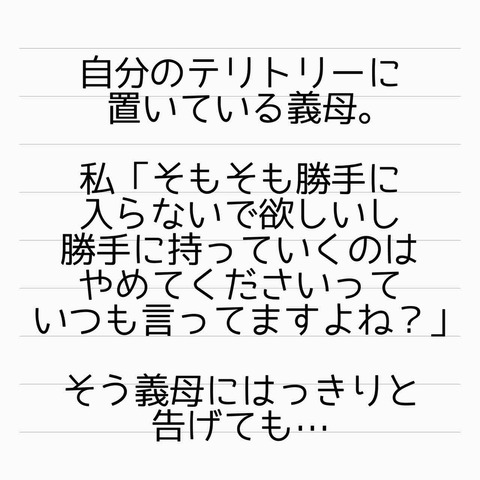 自分のテリトリーに
置いている義母。
私「そもそも勝手に
入らないで欲しいし
勝手に持っていくのは
やめてくださいって
いつも言ってますよね？」
そう義母にはっきりと
告げても…